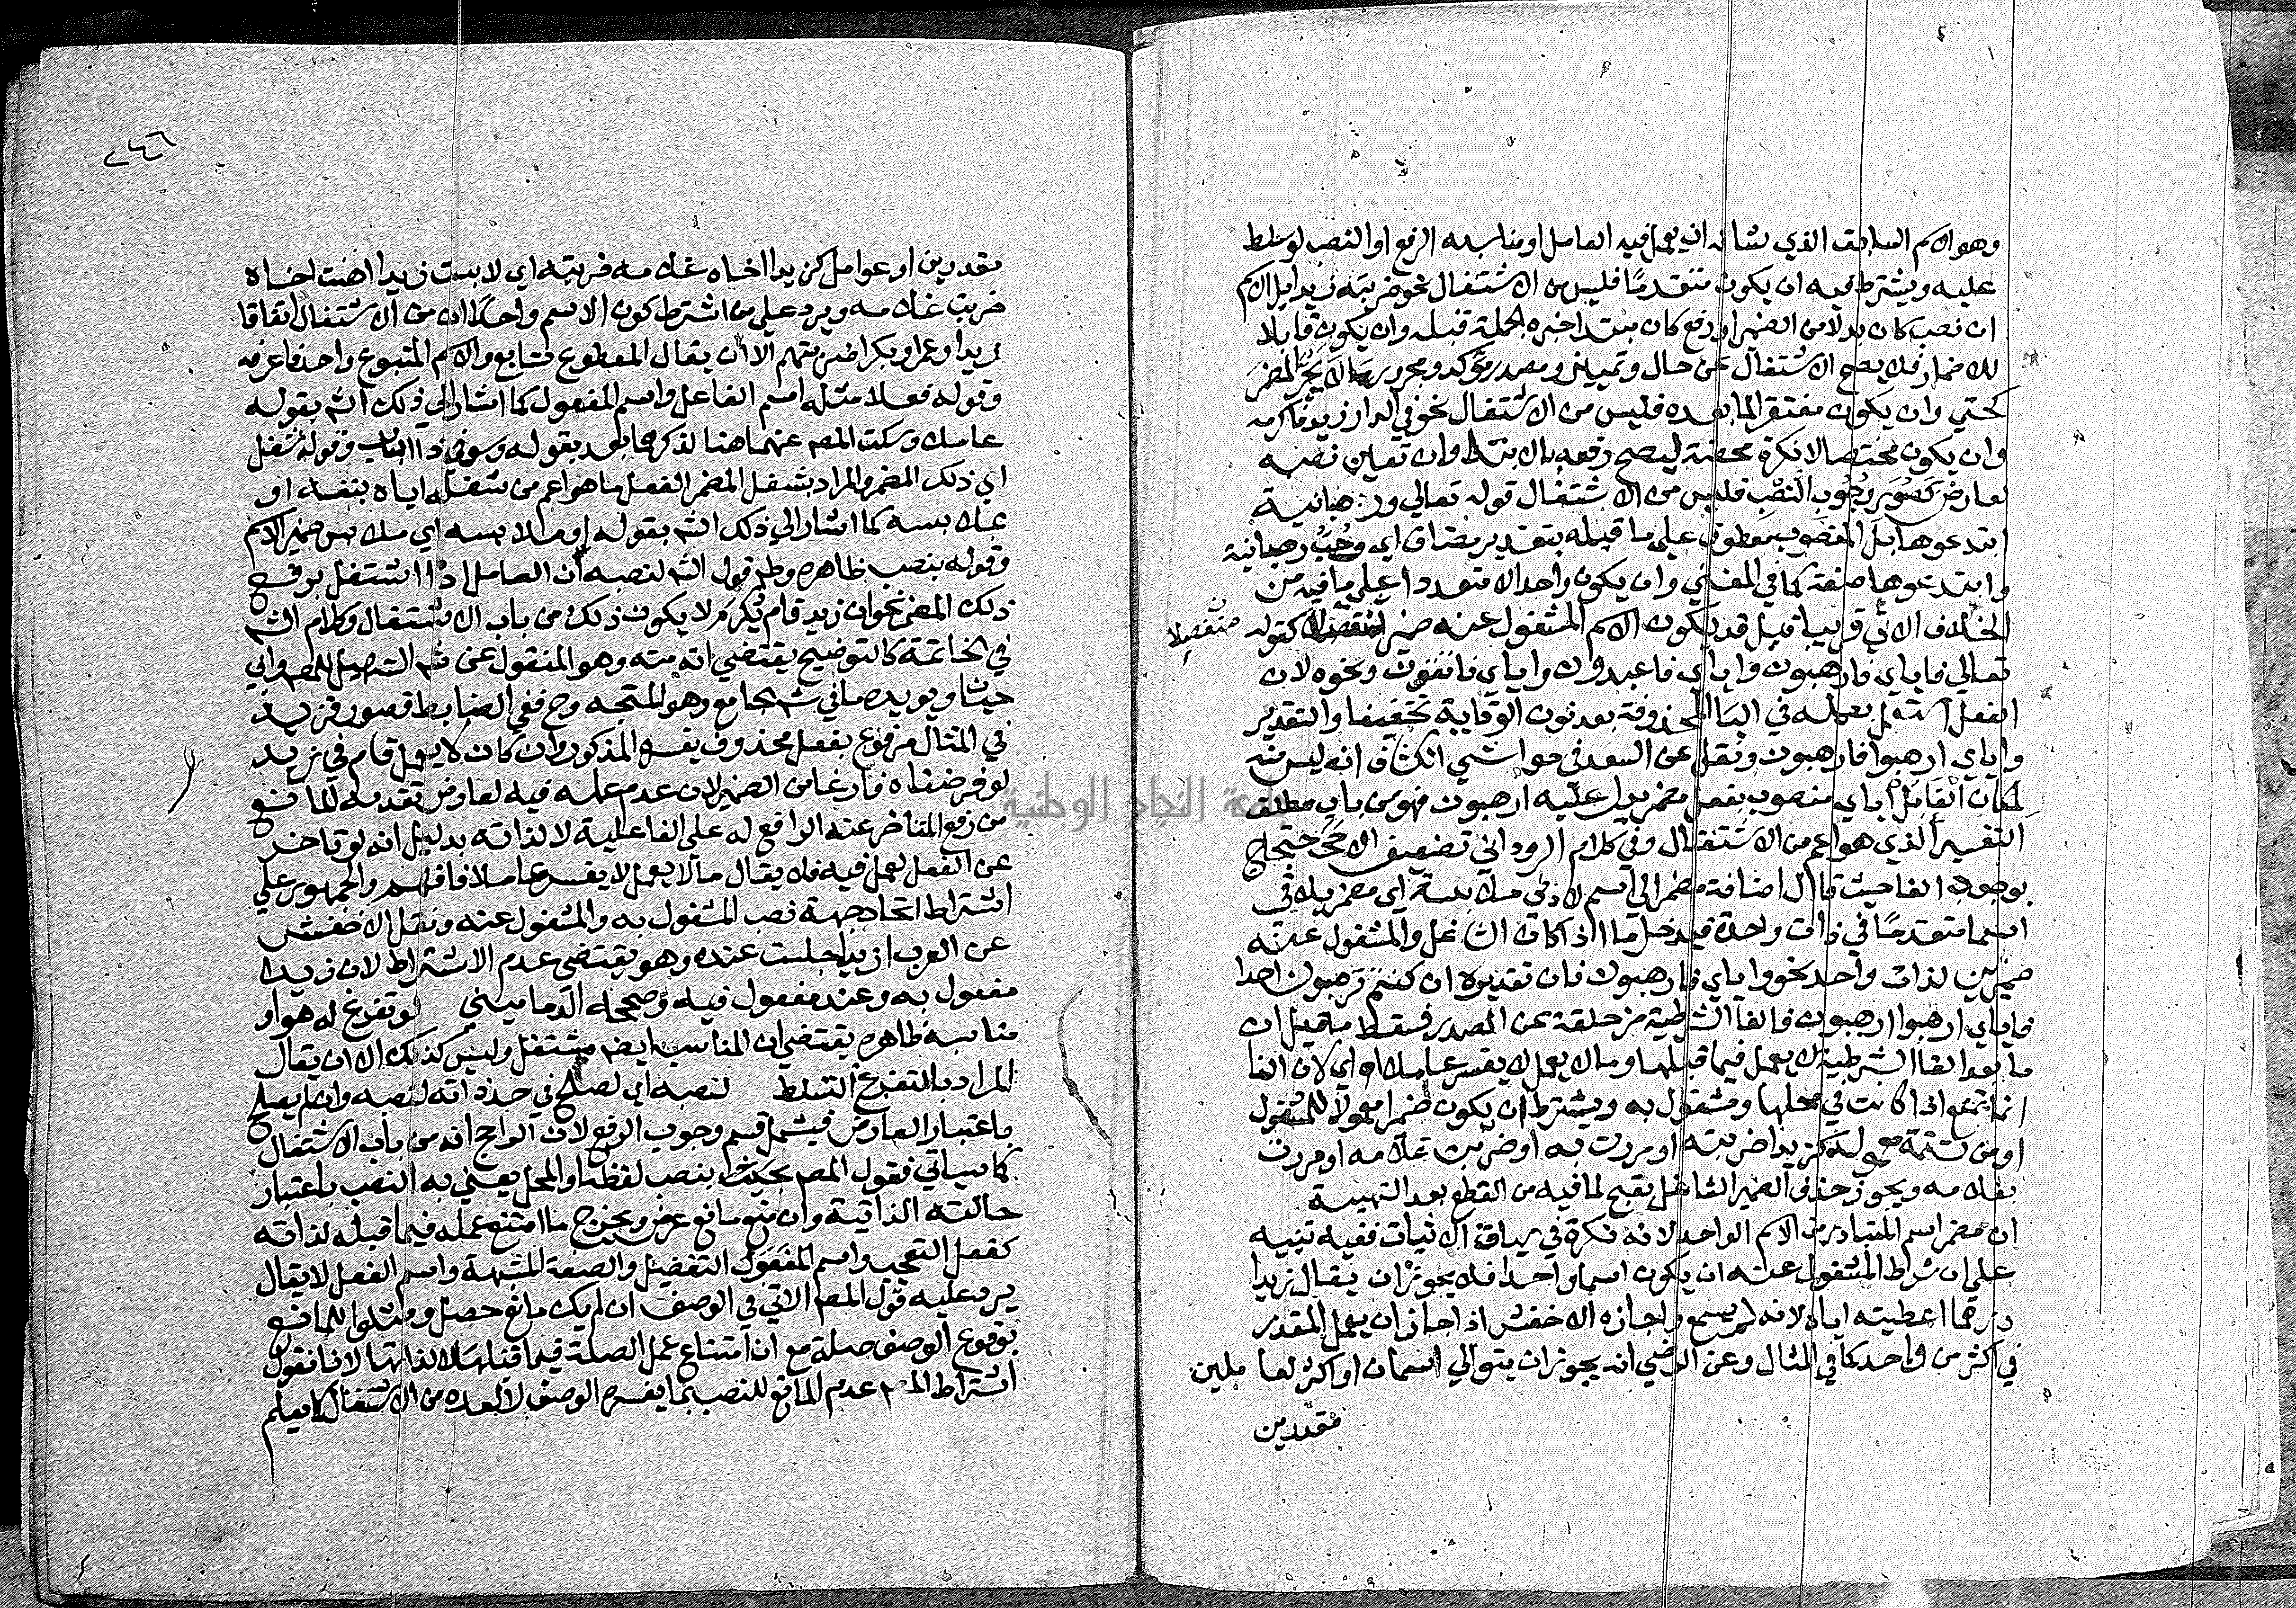 وهو الاسم السابق الذي شانه ان يعمل فيه العامل او مناسبه الرفع او النصب لو سلط
عليه ويشترط فيه ان يكون متقدمًا فليس من الاشتغال نحو ضربته زيدا بل الاسم
ان نصب كان بدلا من الضمير او رفع كان مبتدا خبره الجملة قبله وان يكون قابلا
للاضمار فلا يصح الاشتغال عن حال وتمييز ومصدر مؤكد ومجرور بما لا يجر المضمر
كحتي وان يكون مفتقرا لما بعده فليس من الاشتغال نحو في الدار زيد فاكرمه
وان يكون مختصا لا نكرة محضة ليصح رفعه بالابتدا وان تعين نصبه
لعارض كصور وجوب النصب فليس من الاشتغال قوله تعالي ورهبانية
ابتدعوها بل المنصوب معطوف علي ما قبله بتقدير مضاف اي وحب رهبانية
وابتدعوها صفة كما في المغني وان يكون واحدا لا متعددا علي ما فيه من
الخلاف الاتي قريبا قيل قد يكون الاسم المشغول عنه ضميرا منفصلا كقوله
منفصلا
تعالي فاياي فارهبون واياي فاعبدون واياي فاتقون ونحوه لان
الفعل اشتغل بعمله في اليا المحذوفة بعد نون الوقاية تخفيفا والتقدير
واياي ارهبوا فارهبون ونقل عن السعد في حواشي الكشاف انه ليس منه
لمكان الفا بل اياي منصوب بفعل مضمر يدل عليه ارهبون فهو من باب مطلق
التفسير الذي هو اعم من الاشتغال وفي كلام الروداني تضعيف الاحتجاج
بوجود الفا حيث قال اضافة مضمر الي اسم لادني ملابسة اي مضمر يلاقي
اسما متقدمًا في ذات واحدة فيدخل ما اذا كان الشاغل والمشغول عنه
ضميرين لذات واحد نحو واياي فارهبون فان تقديره ان كنتم ترهبون احدا
فاياي ارهبوا ارهبون فالفا الشرطية مزحلقة عن المصدر فسقط ما قيل ان
ما بعد الفا الشرطية لا يعمل فيما قبلها وما لا يعمل لا يفسر عاملا اه اي لان الفا
انما تمنع اذا كانت في محلها ومشغول به ويشترط ان يكون ضميرا معمولا للمشغول
او من تتمة معموله كزيدا ضربته او مررت به او ضربت غلامه او مررت
بغلامه ويجوز حذف الضمير الشاغل بقبح لما فيه من القطع بعد التهيية
ان مضمر اسم المتبادر من الاسم الواحد لانه نكرة في سياق الاثبات ففيه تنبيه
علي ان شرط المشغول عنه ان يكون اسما واحدا فلا يجوز ان يقال زيدا
درهما اعطيته اياه لانه لم يسمع واجازه الاخفش اذ اجاز ان يعمل المقدر
في اكثر من واحد كما في المثال وعن الرضي انه يجوز ان يتوالي اسمان او اكثر لعاملين
مقدرين
٢٤٦
مقدرين او عوامل كزيدا اخاه غلامه ضربته اي لابست زيدا اهنت اخاه
ضربت غلامه ويرد علي من اشترط كون الاسم واحدا ان من الاشتغال اتفاقا
زيدا وعمرا وبكرا ضربتهم الا ان يقال المعطوف تابع والاسم المتبوع واحد فاعرفه
وقوله فعلا مثله اسم الفاعل واسم المفعول كما اشار الي ذلك الش بقوله
عامل وسكت المص عنهما هنا لذكرهما بعد بقوله وسو في ذا الباب وقوله شغل
اي ذلك المضمر والمراد بشغل المضمر الفعل ما هو اعم من شغله اياه بنفسه او
بملابسه كما اشار الي ذلك الش بقوله او ملابسه اي ملابس ضمير الاسم
وقوله بنصب ظاهره وظاهر قول الش لنصبه ان العامل اذا اشتغل برفع
ذلك المضمر نحو ان زيد قام فاكرمه لا يكون ذلك من باب الاشتغال وكلام الش
في الخاتمة كالتوضيح يقتضي انه منه وهو المنقول عن شرح التسهيل للمص وابي
حيان ويويده ما في شرح الجامع وهو المتجه وح ففي الضابط قصور فزيد
في المثال مرفوع بفعل محذوف يفسره المذكور وان كان لا يعمل قام في زيد
لو فرضناه فارغا من الضمير لان عدم عمله فيه لعارض تقدمه المانع
من رفع المتاخر عنه الرافع له علي الفاعلية لا لذاته بدليل انه لو تاخر
عن الفعل لعمل فيه فلا يقال ما لا يعمل لا يفسر عاملا فافهم والجمهور علي
اشتراط اتحاد جهة نصب المشغول به والمشغول عنه ونقل الاخفش
عن العرب ازيدا جلست عنده وهو يقتضي عدم الاشتراط لان زيدا
مفعول به وعند مفعول فيه وصححه الدماميني لو تفرغ له هو او
مناسبه ظاهره يقتضي ان المناسب ايض مشتغل وليس كذلك الا ان يقال
المراد بالتفرغ التسلط لنصبه اي لصلح في حد ذاته لنصبه وان لم يصلح
باعتبار العارض فيشمل قسم وجوب الرفع لان الراجح انه من باب الاشتغال
كما سياتي فقول المص بحيث بنصب لفظه او المحل يعني به النصب باعتبار
حالته الذاتية وان منع مانع عرض ويخرج ما امتنع عمله فيما قبله لذاته
كفعل التعجب واسم التفضيل والصفة المشبهة واسم الفعل لا يقال
يرد عليه قول المص الاتي في الوصف ان لم يك مانع حصل ومثلوا للمانع
بوقوع الوصف صلة مع ان امتناع عمل الصلة فيما قبلها لذاتها لانا نقول
اشتراط المص عدم المانع للنصب بما يفسره الوصف لا لعده من الاشتغال كما فيلم